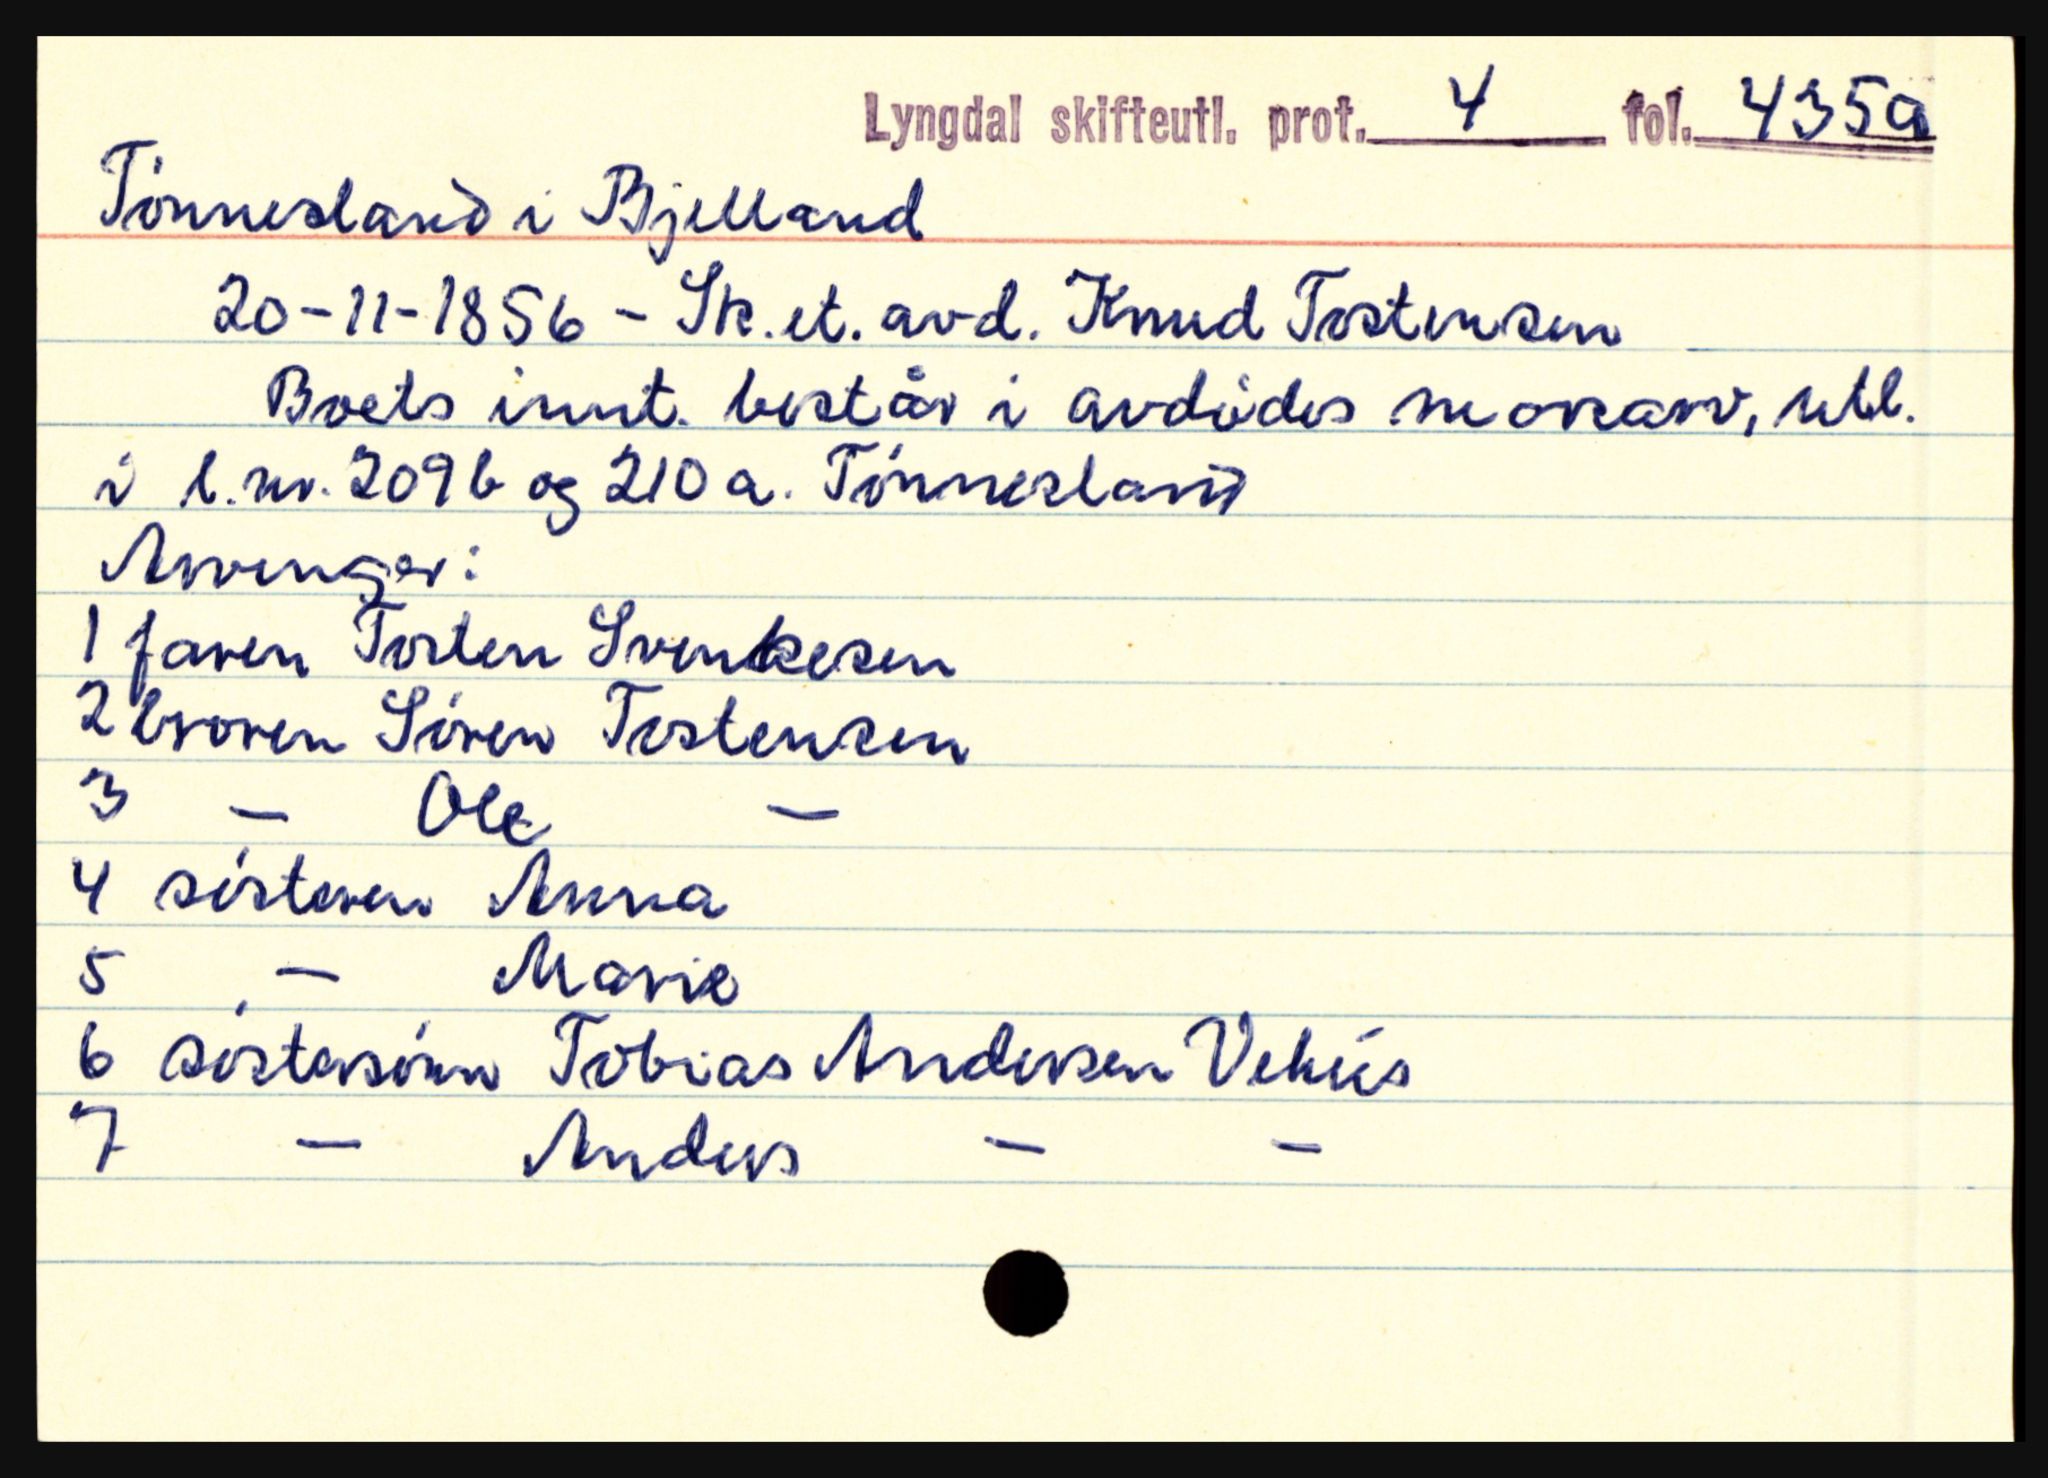 Lyngdal skifteutl. prot. 4 fol. 435a
Tønnesland i Bjelland
20-11-1856 - Sk. et. avd. Knud Tostensen
Boets innt. består i avdødes morsarv, utl.
i l.nr. 209b og 210a. Tønnesland
Arvinger:
1 faren Tosten Svenkesen
2 broren Søren Tostensen
3 — Ole —
4 søsteren Anna
5 — Marie
6 søstersønn Tobias Andersen
7 — Anders — —